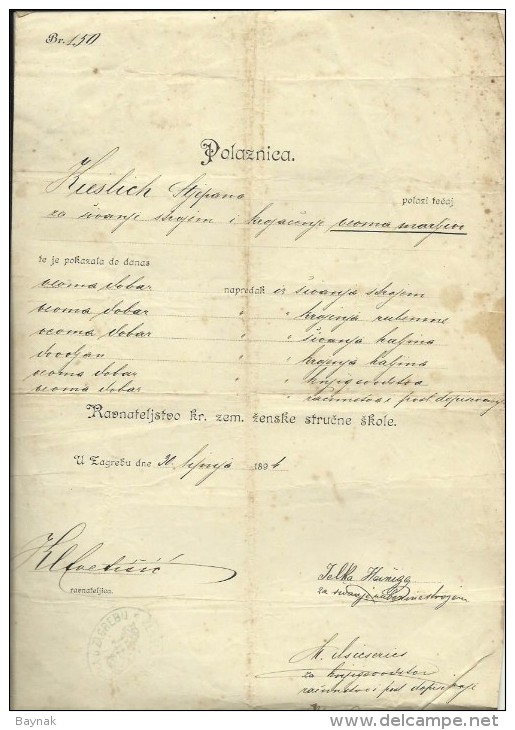 Br. 150
Polaznica.
Kieslich Stjepana polazi tečaj
za šivanje strojem i krojačenje veoma marljivo
te je pokazala do danas
veoma dobar napredak iz šivanja strojem
veoma dobar " " krojenja rubenine
veoma dobar " " šivanja haljina
dovoljan " " krojenja haljina
veoma dobar " " knjigovodstva
veoma dobar " " računstva i posl. dopisivanja
Ravnateljstvo kr. zem. ženske stručne škole.
U Zagrebu dne 30. lipnja 1894
ravnateljica.
Jelka
za šivanje strojem
za knjigovodstvo
računstvo i posl. dopisivanje
ZAGREBU
Baynak
www.delcampe.net